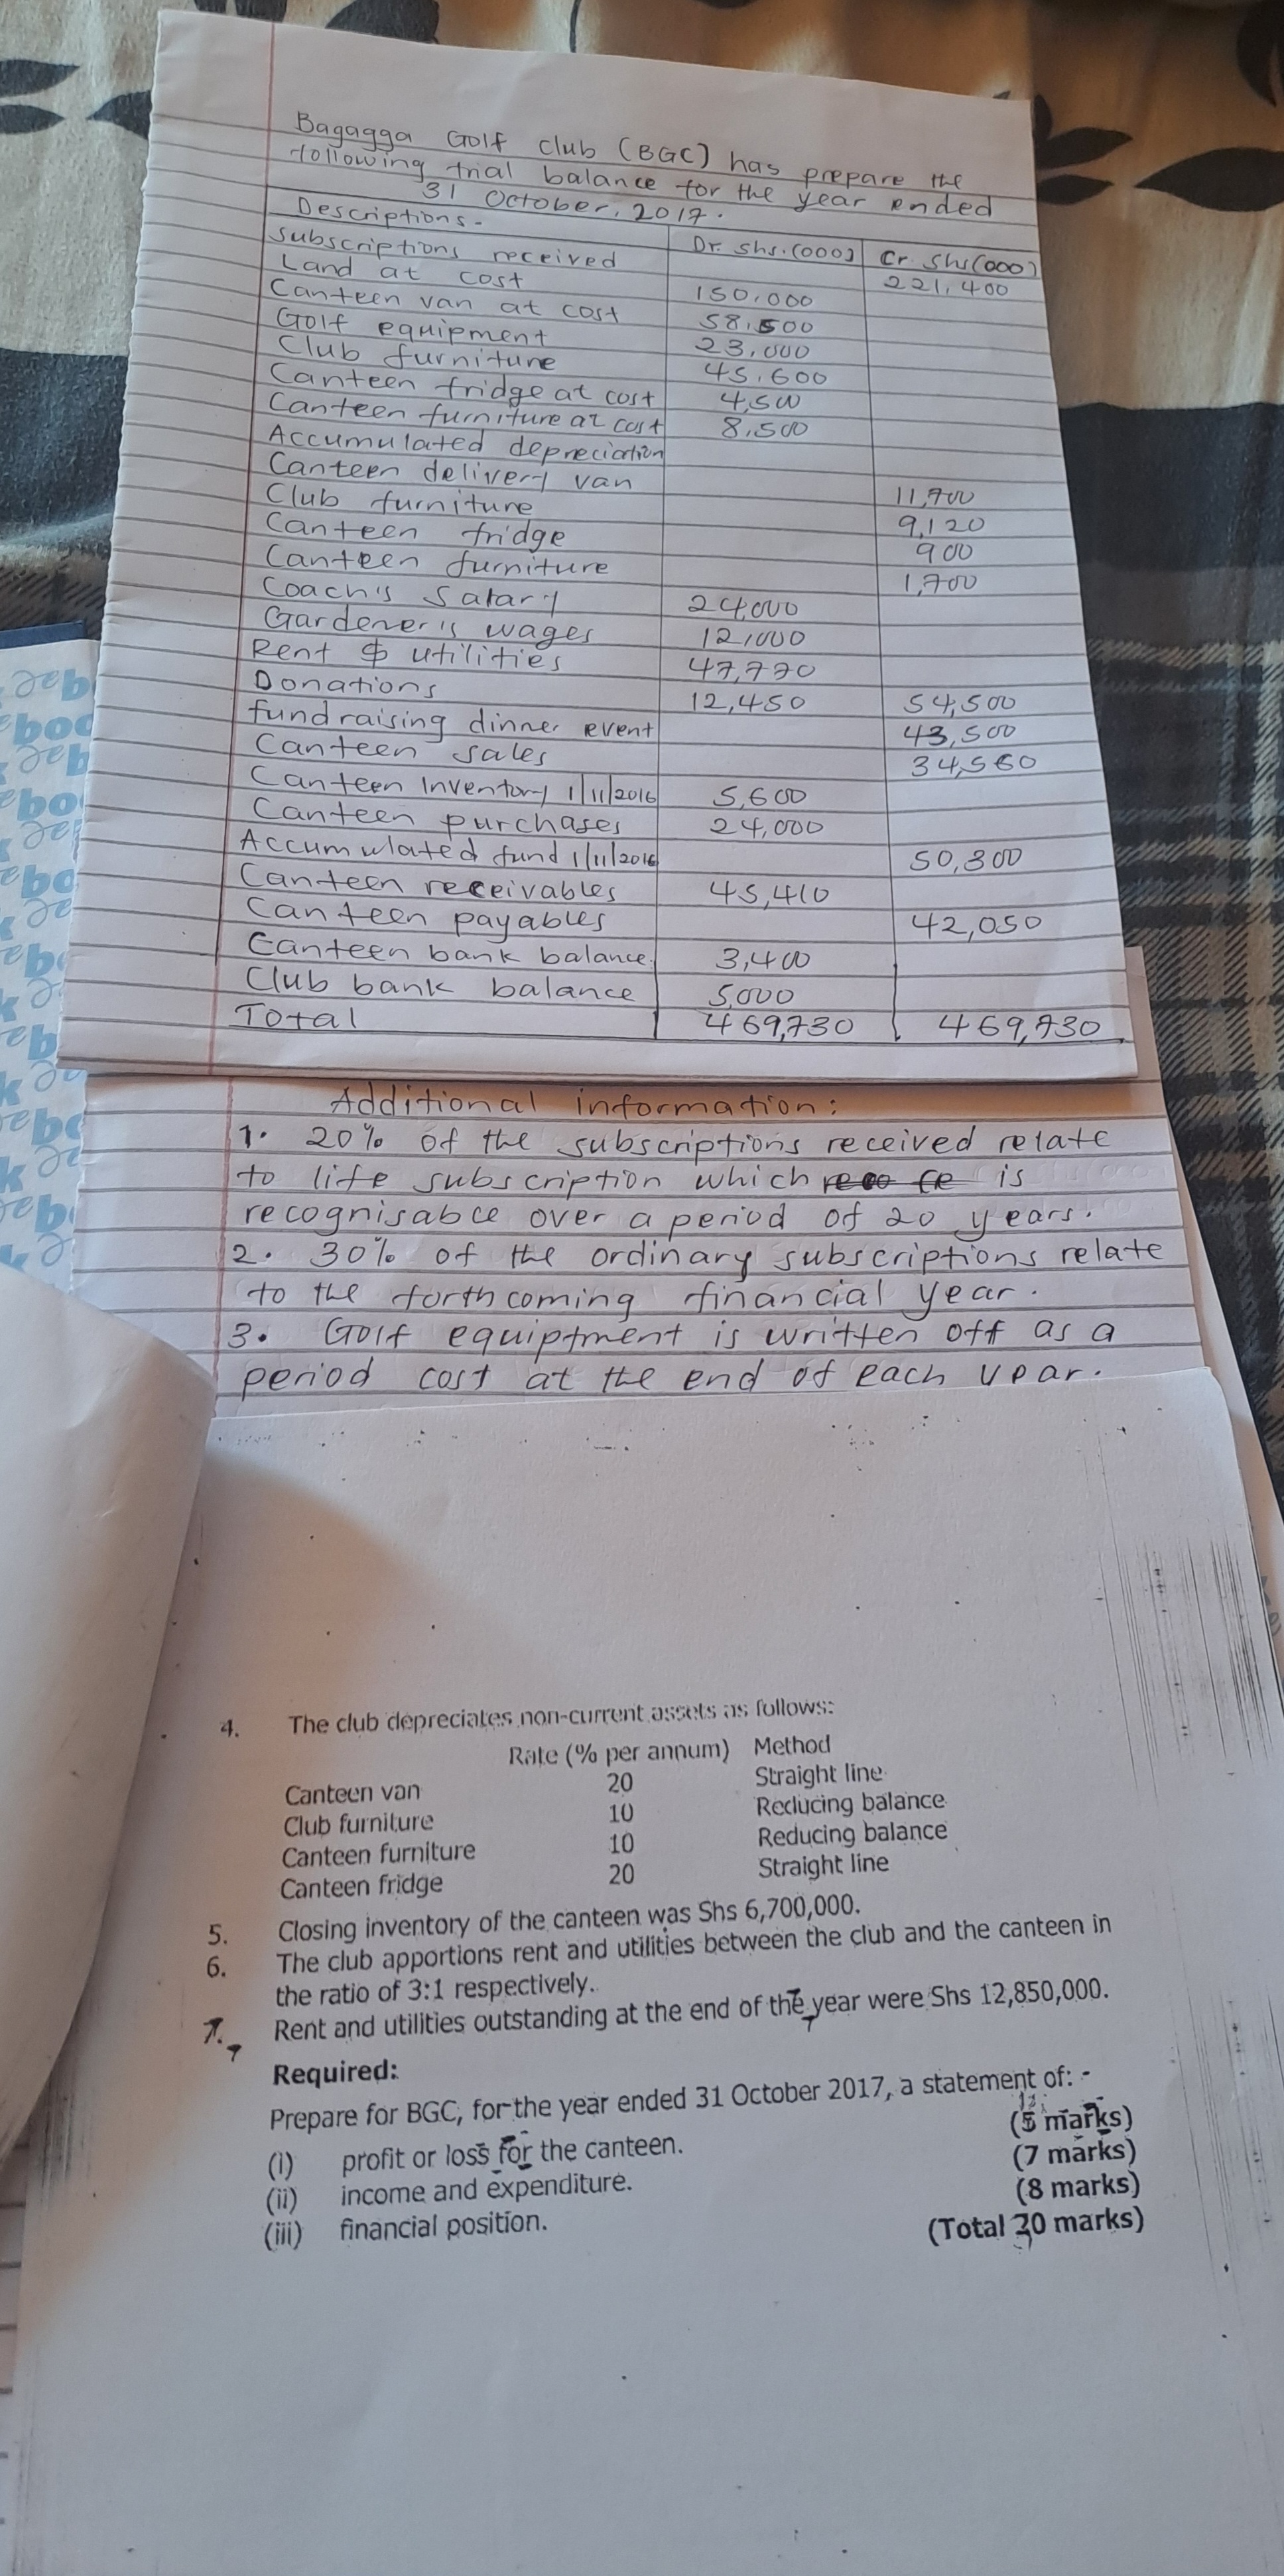 Bagagga Golf Club (BGC) has prepare the
following trial balance for the year ended
31 October, 2017.
Descriptions- Dr. Shs.(000) Cr. Shs(000)
Subscriptions received 221,400
Land at cost 150,000
Canteen van at cost 58,500
Golf equipment 23,000
Club furniture 45,600
Canteen fridge at cost 4,500
Canteen furniture at cost 8,500
Accumulated depreciation
Canteen delivery van 11,700
Club furniture 9,120
Canteen fridge 900
Canteen furniture 1,700
Coach's Salary 24,000
Gardener's wages 12,000
Rent & utilities 47,770
Donations 12,450 54,500
fundraising dinner event 43,500
Canteen sales 34,560
Canteen Inventory 1/11/2016 5,600
Canteen purchases 24,000
Accumulated fund 1/11/2016 50,300
Canteen receivables 45,410
Canteen payables 42,050
Canteen bank balance 3,400
Club bank balance 5,000
Total 469,730 469,730
Additional information:
1. 20% of the subscriptions received relate
to life subscription which is
recognisable over a period of 20 years.
2. 30% of the ordinary subscriptions relate
to the forthcoming financial year.
3. Golf equiptment is written off as a
period cost at the end of each year.
4. The club depreciates non-current assets as follows:
Rate (% per annum) Method
Canteen van 20 Straight line
Club furniture 10 Reducing balance
Canteen furniture 10 Reducing balance
Canteen fridge 20 Straight line
5. Closing inventory of the canteen was Shs 6,700,000.
6. The club apportions rent and utilities between the club and the canteen in
the ratio of 3:1 respectively.
7. Rent and utilities outstanding at the end of the year were Shs 12,850,000.
Required:
Prepare for BGC, for the year ended 31 October 2017, a statement of: -
(i) profit or loss for the canteen. (5 marks)
(ii) income and expenditure. (7 marks)
(iii) financial position. (8 marks)
(Total 20 marks)